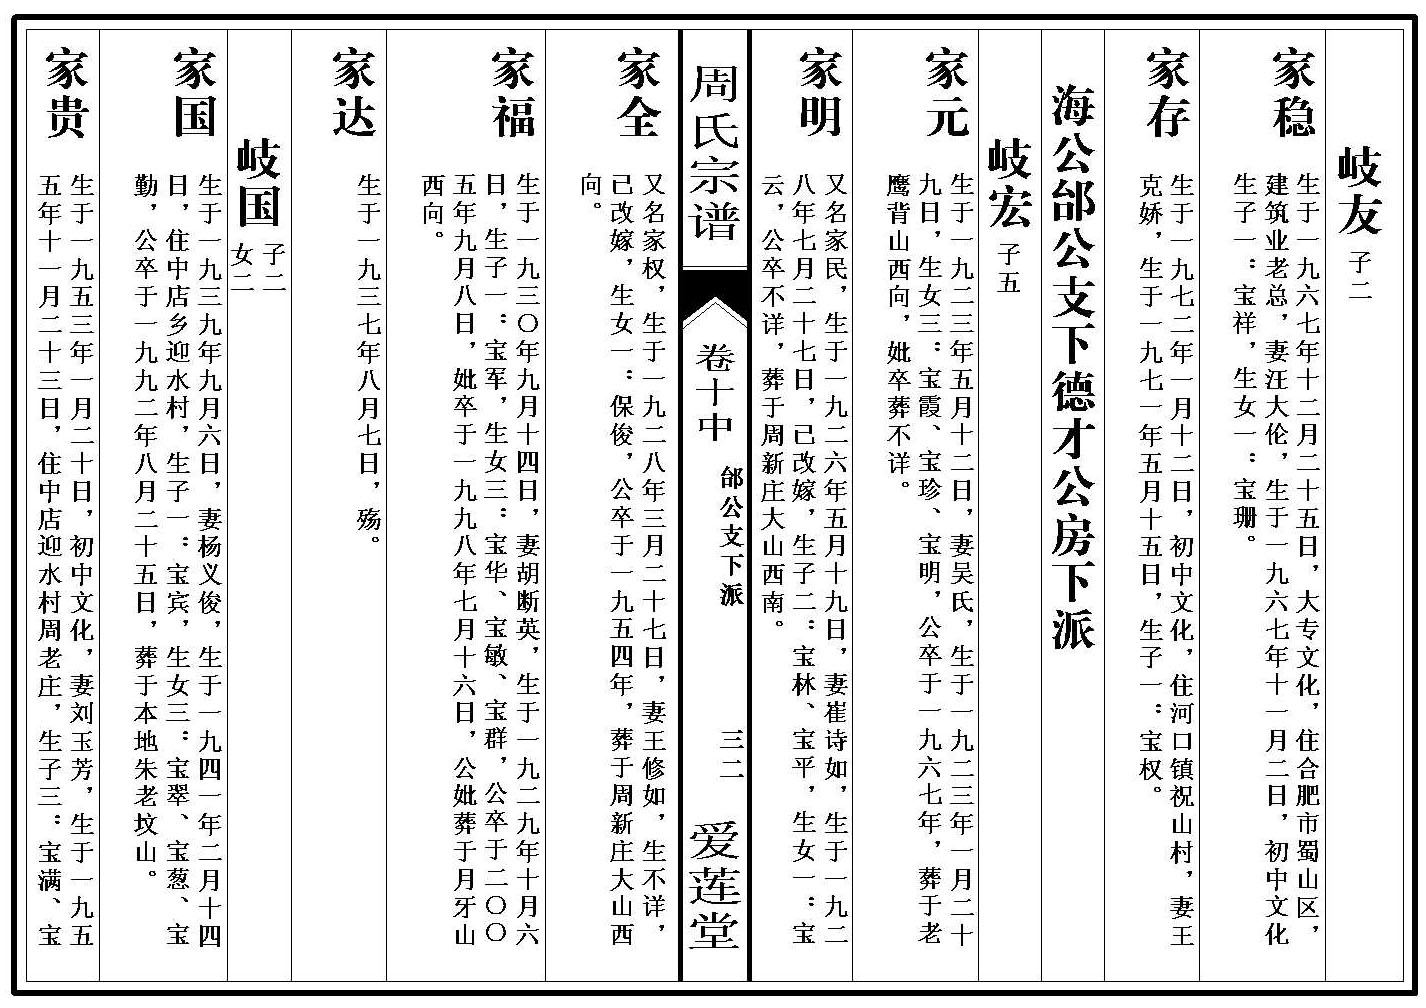 岐友 子二
家稳
生于一九六七年十二月二十五日，大专文化，住合肥市蜀山区，
建筑业老总，妻汪大伦，生于一九六七年十一月二日，初中文化
生子一：宝祥，生女一：宝珊。
家存
生于一九七二年一月十二日，初中文化，住河口镇祝山村，妻王
克娇，生于一九七一年五月十五日，生子一：宝权。
海公邰公支下德才公房下派
岐宏 子五
家元
生于一九二三年五月十二日，妻吴氏，生于一九二三年一月二十
九日，生女三：宝霞、宝珍、宝明，公卒于一九六七年，葬于老
鹰背山西向，妣卒葬不详。
家明
又名家民，生于一九二六年五月十九日，妻崔诗如，生于一九二
八年七月二十七日，已改嫁，生子二：宝林、宝平，生女一：宝
云，公卒不详，葬于周新庄大山西南。
周氏宗谱
卷十中
邰公支下派
三二
爱莲堂
家全
又名家权，生于一九二八年三月二十七日，妻王修如，生不详，
已改嫁，生女一：保俊，公卒于一九五四年，葬于周新庄大山西
向。
家福
生于一九三〇年九月十四日，妻胡断英，生于一九二九年十月六
日，生子一：宝军，生女三：宝华、宝敏、宝群，公卒于二〇〇
五年九月八日，妣卒于一九九八年七月十六日，公妣葬于月牙山
西向。
家达
生于一九三七年八月七日，殇。
岐国 子二
女二
家国
生于一九三九年九月六日，妻杨义俊，生于一九四一年二月十四
日，住中店乡迎水村，生子一：宝宾，生女三：宝翠、宝葱、宝
勤，公卒于一九九二年八月二十五日，葬于本地朱老坟山。
家贵
生于一九五三年一月二十日，初中文化，妻刘玉芳，生于一九五
五年十一月二十三日，住中店迎水村周老庄，生子三：宝满、宝